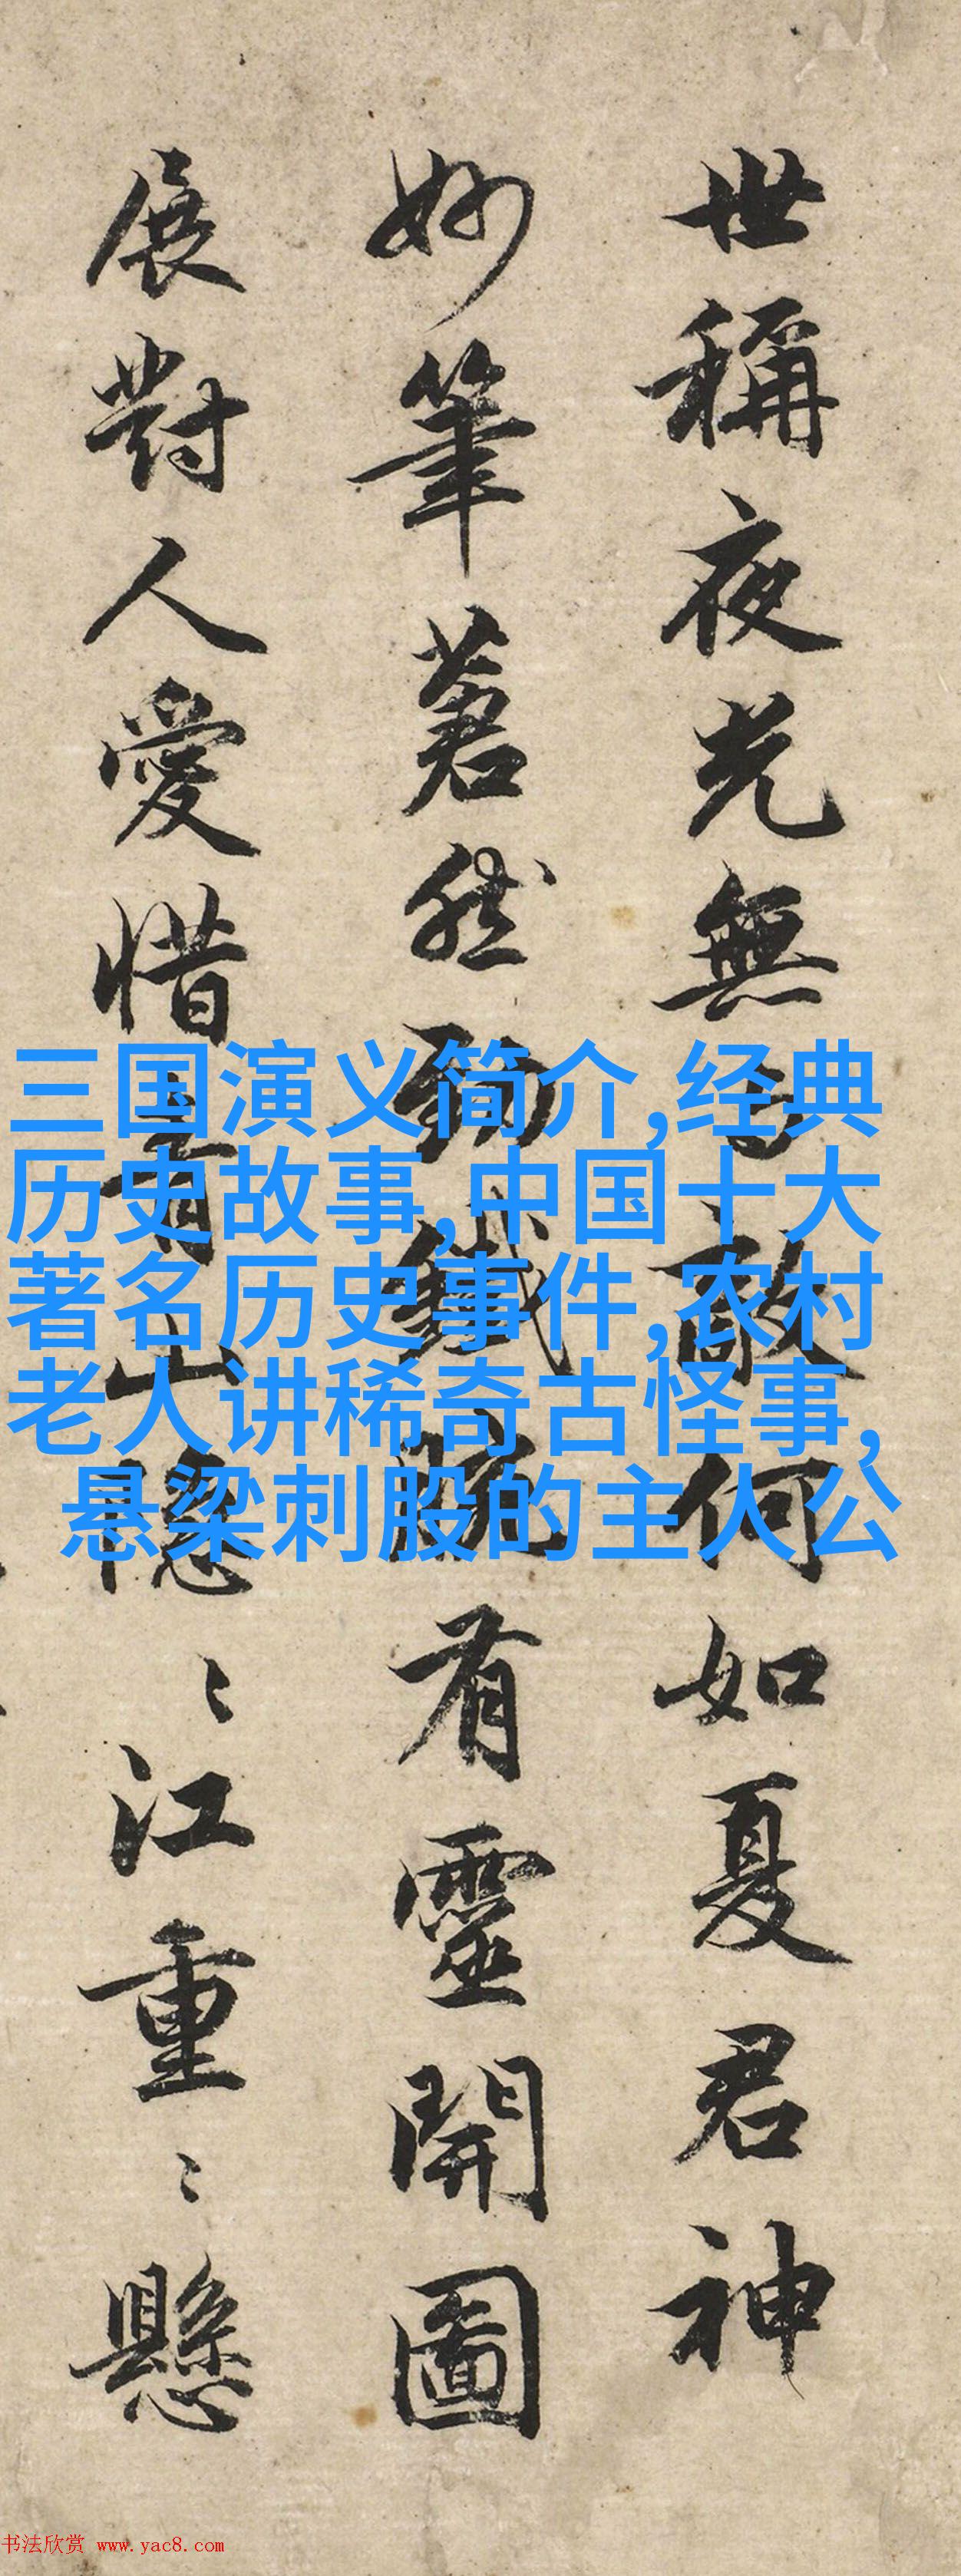 世稱夜光無敵何如夏君神
妙筆蒼然勁鐵腕有靈開圖
展對人愛惜青山隱〻江重〻懸
三国演义简介,经典
历史故事,中国十大
著名历史事件,农村
老人讲稀奇古怪事,
悬梁刺股的主人公
书法欣赏 www.yac8.com